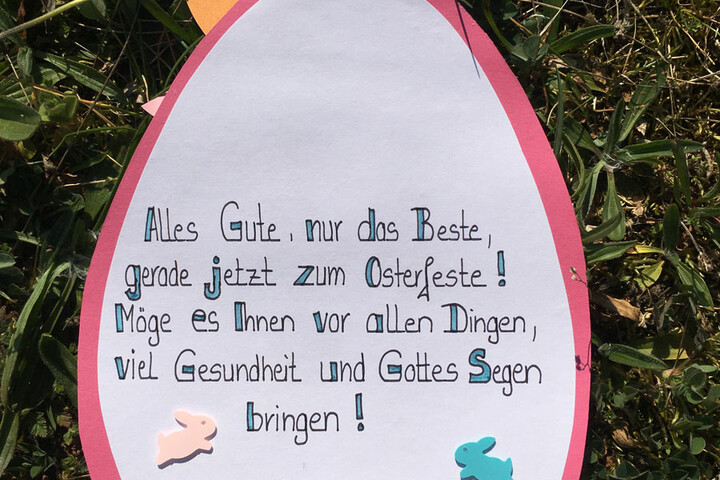 Alles Gute, nur das Beste,
gerade jetzt zum Osterfeste!
Möge es Ihnen vor allen Dingen,
viel Gesundheit und Gottes Segen
bringen!